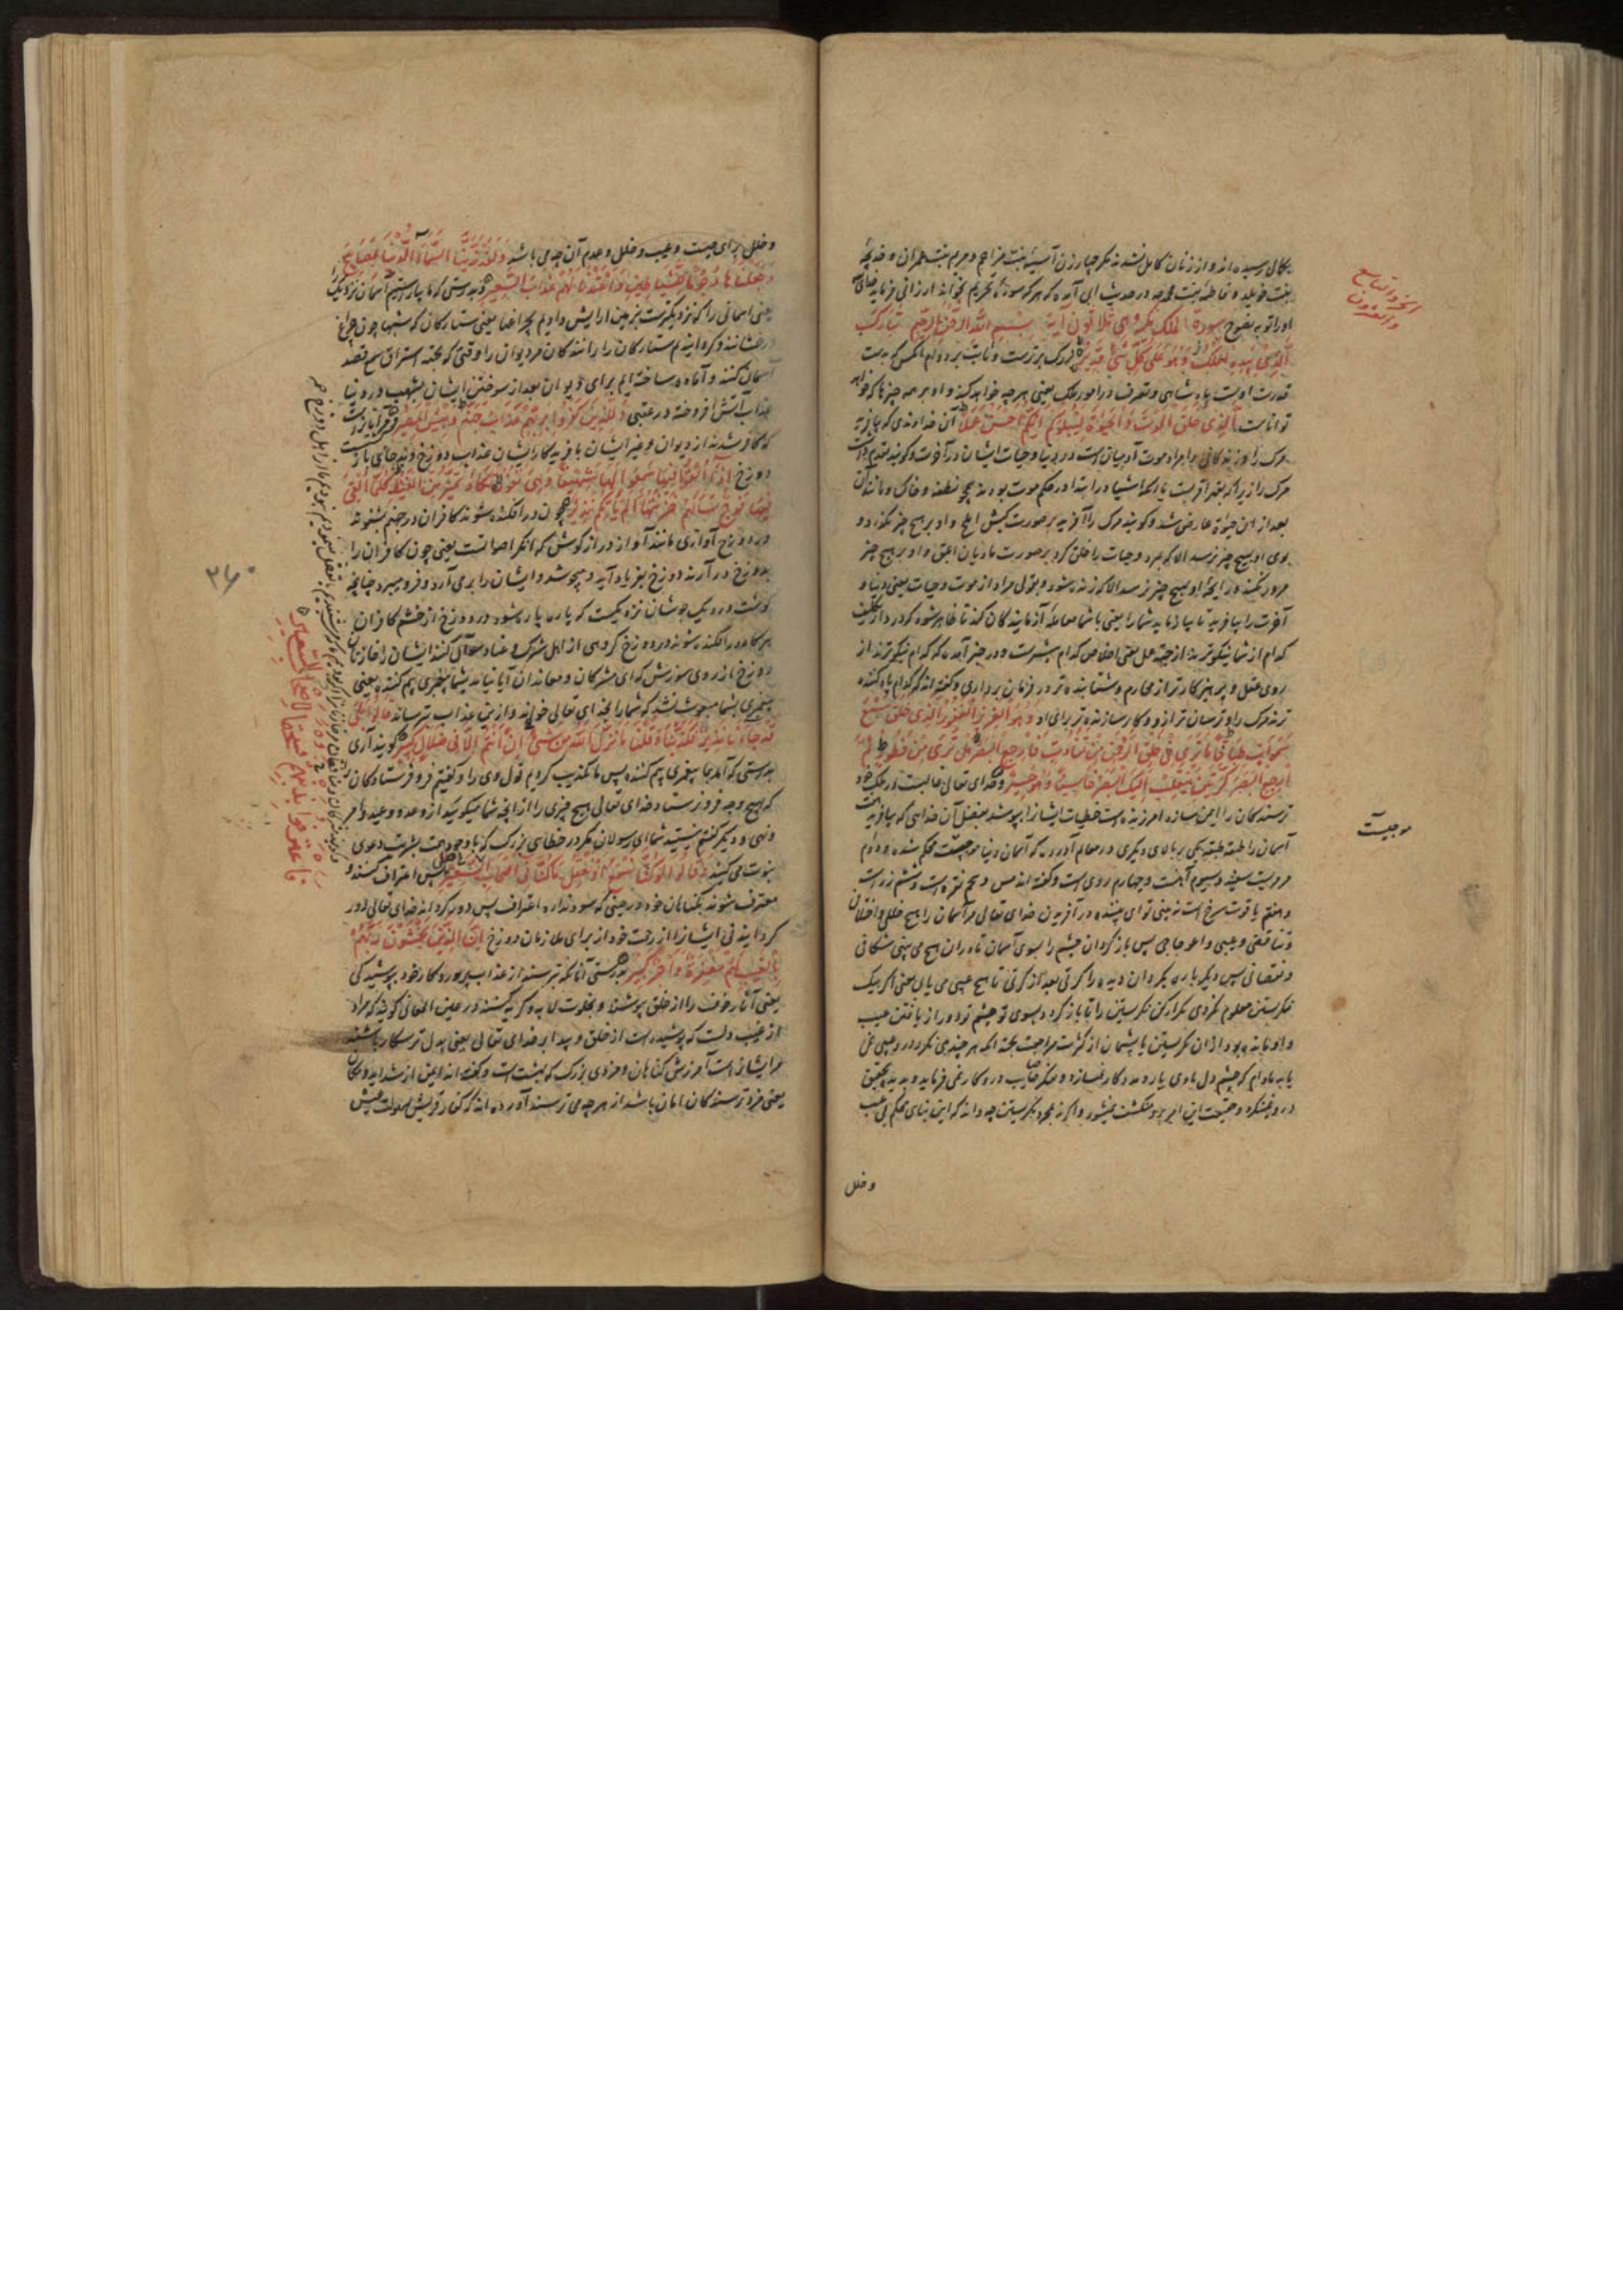 بکمال رسیده اند و از زنان کامل نشدند مگر چهار زن آسیه بنت مزاحم و مریم بنت عمران و خدیجه
بنت خویلد و فاطمه بنت محمد و در حدیث ابی آمده که هر که سورة تحریم بخواند ارزانی فرماید خدای
او را توبه نصوح سورة الملک مکیة وهی ثلاثون آیة بسم الله الرحمن الرحیم تبارک
الذی بیده الملک وهو علی کل شیء قدیر بزرک و برترست و ثابت بر دوام آنکس که بدست
قدرت اوست پادشاهی و تصرف در امور ملک یعنی هر چه خواهد کند و او بر همه چیزها که خواهد
تواناست الذی خلق الموت والحیوة لیبلوکم ایکم احسن عملا آن خداوندی که بیافرید
مرک را و زندکانی را مراد موت آدمیان است در دنیا و حیات ایشان در آخرت و کویند تقدیم داشت
مرک را زیرا که بقهر اقربست یا آنکه اشیا در ابتدا در حکم موت بودند همچو نطفه و خاک و مانند آن
بعد از آن حیوة عارض شد و کویند مرک را آفرید بر صورت کبش املح و او بر هیچ چیز نکذرد و
بوی او بهیچ چیز نرسد الا که بمیرد و حیات را خلق کرد بر صورت مادیان ابلق و او بر هیچ چیز
مرور نکند و رایحه او بهیچ چیز نرسد الا که زنده شود و بقولی مراد از موت و حیات یعنی دنیا و
آخرت را بیافرید تا بیازماید شما را یعنی با شما معامله آزمایندکان کند تا ظاهر شود که در دار تکلیف
کدام از شما نیکوترند از جهة عمل یعنی اخلاص کدام بیشترست و در خبر آمده که کدام نیکوترند از
روی عقل و پرهیزکارتر از محارم و شتابنده تر در فرمان برداری و کفته اند که کدام یاد کننده
ترند مرک را و ترسان تر ازو و کارسازنده تر برای او وهو العزیز الغفور الذی خلق سبع
سموات طباقا ما تری فی خلق الرحمن من تفاوت فارجع البصر هل تری من فطور ثم
ارجع البصر کرتین ینقلب الیک البصر خاسئا وهو حسیر و خدای تعالی غالبست در ملک خود
ترسندکان را ایمن سازد آمرزنده است خطیات ایشانرا بپوشد بفضل آن خدایی که بیافرید
آسمان را طبقه طبقه یکی بر بالای دیکری و در معالم آورده که آسمان دنیا موجیست محکم شده و دوم
مرمریست سفید و سیوم آهنست و چهارم روی است و کفته اند مس و پنجم نقره است و ششم زر است
و هفتم یاقوت سرخ است نه بینی تو ای بیننده در آفریدن خدای تعالی مر آسمان را هیچ خللی و اختلافی
و تناقض و عیبی و اعوجاجی پس باز کردان چشم را بسوی آسمان تا در آن هیچ می بینی شکافی
و نقصانی پس دیکر باره بکردان دیده را کرتی بعد از کرتی تا هیچ عیبی می یابی یعنی اکر بیک
نکریستن معلوم نکردی تکرار کن نکریستن را تا باز کردد بسوی تو چشم تو دور از یافتن عیب
یابد مادام که چشم دل هادی یار و مددکار نسازد
وخلل

الجزو التاسع
والعشرون
موجیست

و خلل برای چیست و عیب و خلل و عدم آن چه می باشد ولقد زینا السماء الدنیا بمصابیح
وجعلناها رجوما للشیاطین واعتدنا لهم عذاب السعیر و بدرستی که ما بیاراستیم آسمان نزدیک
یعنی آسمانی را که نزدیکترست بزمین آرایش دادیم بچراغها یعنی ستارکان که شبها چون چراغ
درخشانند و کردانیدیم ستارکان را رانندکان مر دیوان را وقتی که بجهة استراق سمع قصد
آسمان کنند و آماده ساخته ایم برای دیوان بعد از سوختن ایشان بشهب در دنیا
عذاب آتش افروخته در عقبی وللذین کفروا بربهم عذاب جهنم وبئس المصیر
که کافر شدند از دیوان و غیر ایشان بآفریدکار ایشان عذاب دوزخ و بد جای بازکشت
دوزخ اذا القوا فیها سمعوا لها شهیقا وهی تفور تکاد تمیز من الغیظ کلما القی
فیها فوج سألهم خزنتها الم یأتکم نذیر چون در افکنده شوند کافران در جهنم بشنوند
مر دوزخ را آوازی مانند آواز دراز کوش که انکر اصواتست یعنی چون کافران را
بدوزخ در آرند دوزخ بفریاد آید و میجوشد و ایشان را بر می آرد و فرو میبرد چنانچه
کوشت در دیک جوشان نزدیکست که پاره پاره شود دوزخ از خشم کافران
هرکاه در افکنده شوند در دوزخ کروهی از اهل شرک و عناد سوال کنند ایشان را خازنان
دوزخ از روی سرزنش که ای مشرکان و معاندان آیا نیامد بشما پیغمبری بیم کننده یعنی
پیغمبری بشما مبعوث نشد که شما را بخدای تعالی خواند و از این عذاب بترساند قالوا بلی
قد جاءنا نذیر فکذبنا وقلنا ما نزل الله من شیء ان انتم الا فی ضلال کبیر کویند آری
بدرستی که آمد بما پیغمبری بیم کننده پس ما تکذیب کردیم قول وی را و کفتیم فرو فرستادکان
که هیچ وجه فرو نفرستاد خدای تعالی هیچ چیزی را از آنچه شما میکویید از وعده و وعید و امر
و نهی و دیکر کفتیم نیستید شما ای رسولان مکر در خطای بزرک که با وجود بشریت دعوی
نبوت می کنید وقالوا لو کنا نسمع او نعقل ما کنا فی اصحاب السعیر پس اعتراف کنند و
معترف شوند بکناهان خود در حینی که سود ندارد اعتراف پس دور کرداند خدای تعالی دور
کردانیدنی ایشانرا از رحمت خود از برای ملازمان دوزخ ان الذین یخشون ربهم
بالغیب لهم مغفرة واجر کبیر بدرستی آنانکه ترسند از عذاب پروردکار خود بپوشیدکی
یعنی آثار خوف را از خلق بپوشند و بخلوت لابه و کریه کنند و در عین المعانی کوید که مراد
از غیب دلست که پوشیده است از خلق و پیدا بر خدای تعالی یعنی بدل ترسکار باشند
مر ایشانراست آمرزش کناهان و مزدی بزرک که بهشت است و کفته اند ایمن از شداید
یعنی مزد ترسندکان امان باشد از هر چه می ترسند آورده اند که کفار قریش

فاعترفوا بذنبهم فسحقا لاصحاب السعیر
۲۶۰